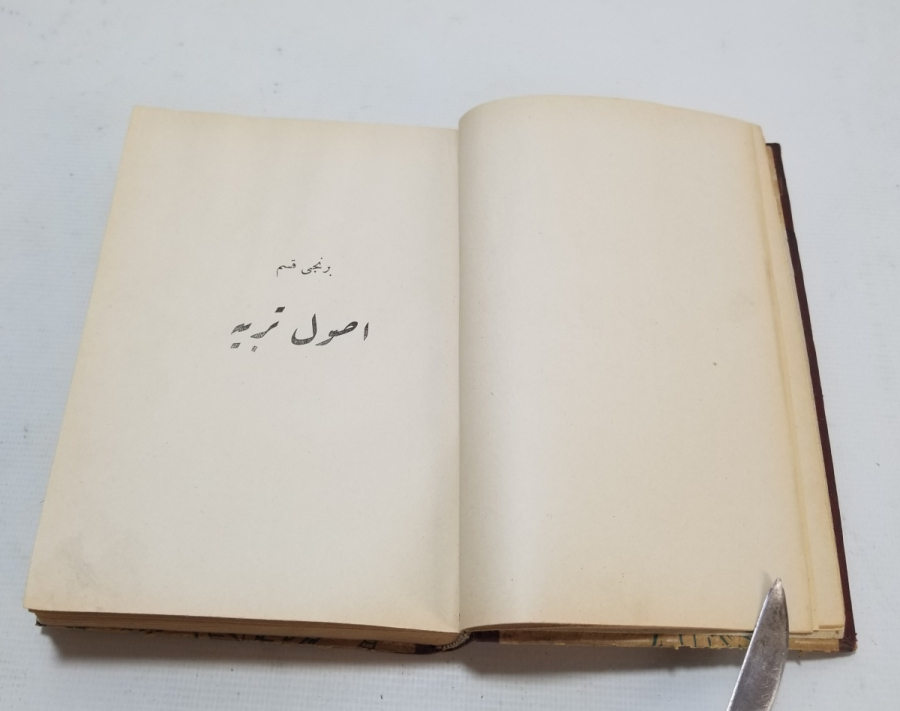 برنجی قسم
اصول تربیه